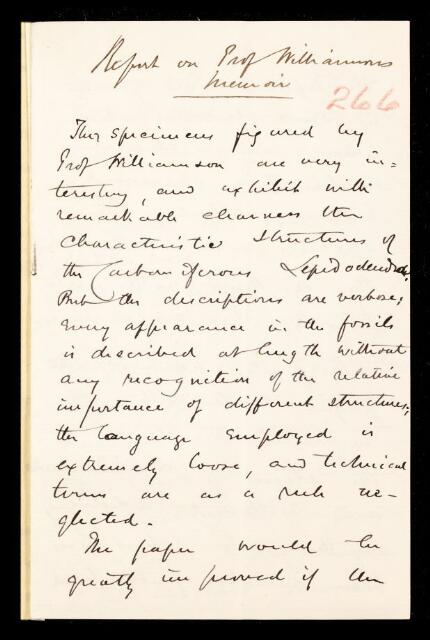 Report on Prof Williamsons
Memoir
266
The specimens figured by
Prof Williamson are very in=
teresting, and exhibit with
remarkable clearness the
Characteristic structures of
the Carboniferous Lepidodendra.
But the descriptions are verbose;
every appearance in the fossils
is described at length without
any recognition of the relative
importance of different structures;
the language employed is
extremely loose, and technical
terms are as a rule ne-
glected.
The paper would be
greatly improved if the